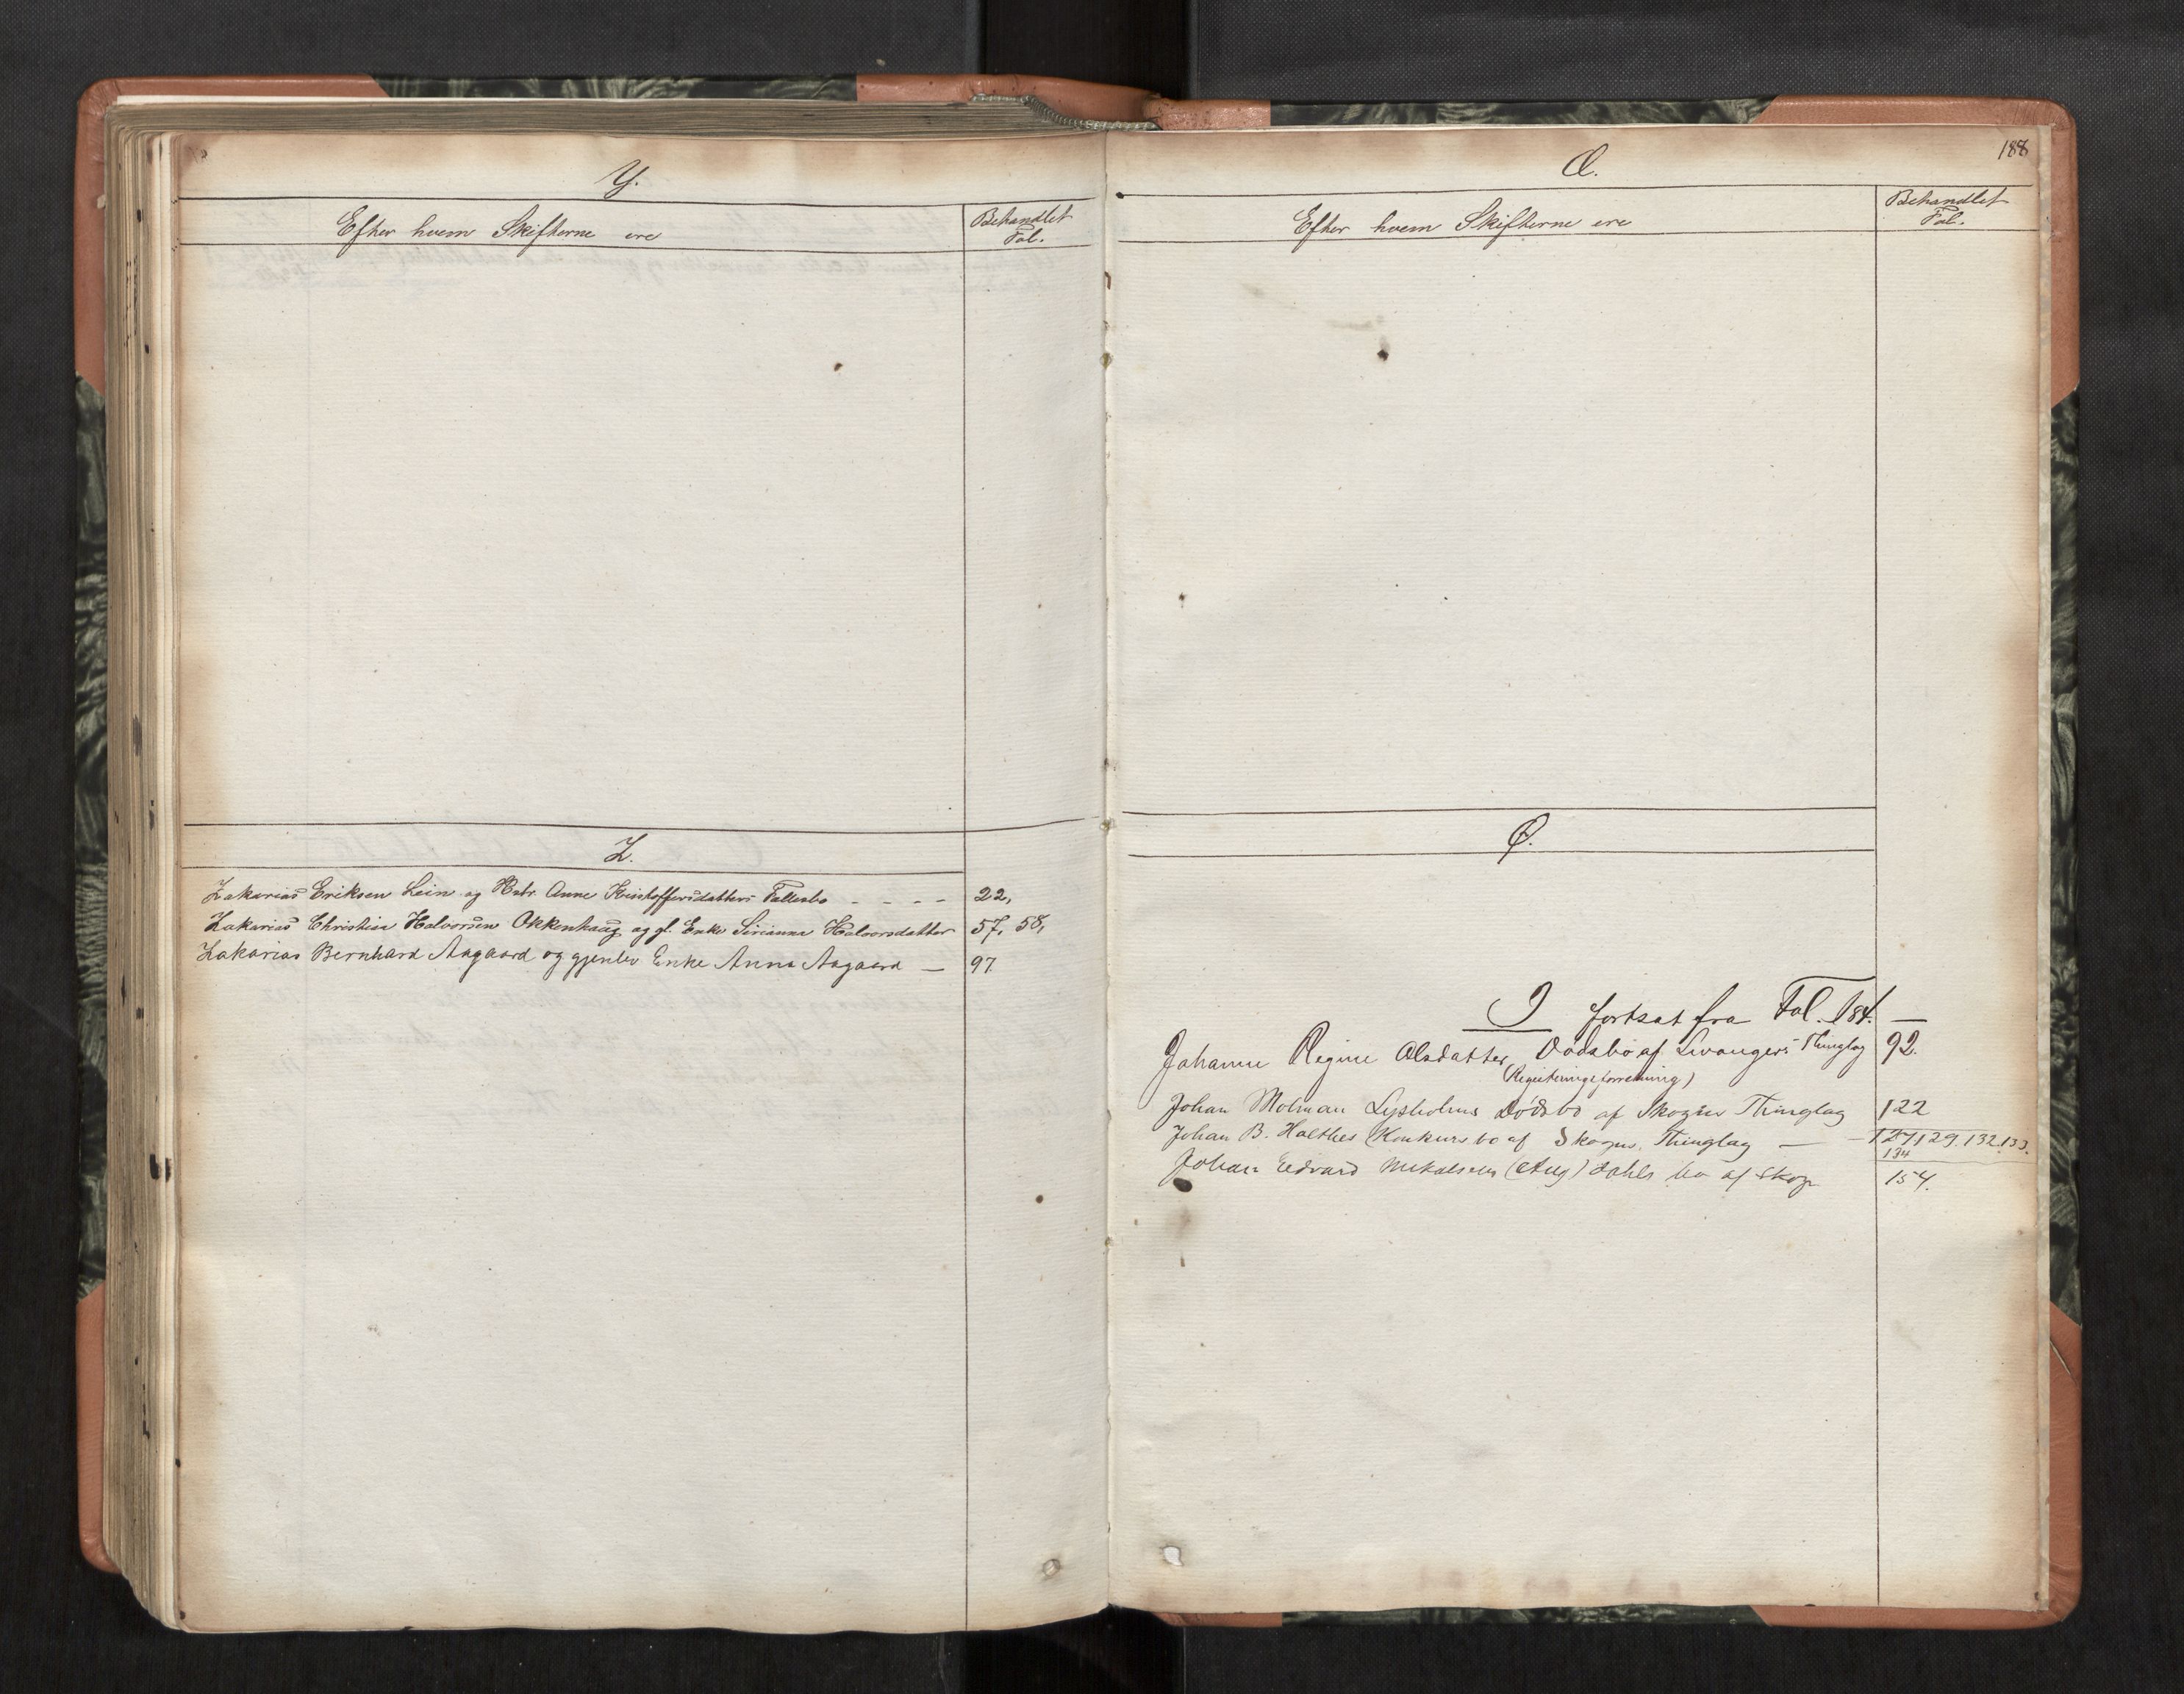 Y.
Efter hvem Skifterne ere
Behandlet
Fol.
Z.
Zakarias Eriksen Lein og Hstr. Anne Kristoffersdatter Fallesbo - - - - 22,
Zakarias Christian Halvorsen Okkenhaug og gl. Enke Sirianna Halvorsdatter 57, 58,
Zakarias Bernhard Aagaard og gjenlev Enke Anna Aagaard — 97
188
Æ.
Efter hvem Skifterne ere
Behandlet
Fol.
Ø.
J fortsat fra Fol. 184. —
Johanne Regine Olsdatter, Dødsbo af Levangers Thinglag 92.
(Registreringsforretning)
Johan Molman Lysholms Dødsbo af Skogns Thinglag 122
Johan B. Holthes Konkursbo af Skogns Thinglag — 127, 129. 132. 133.
134
Johan Edvard Mikalsens (Aug) Dahls bo af Skogn 154.